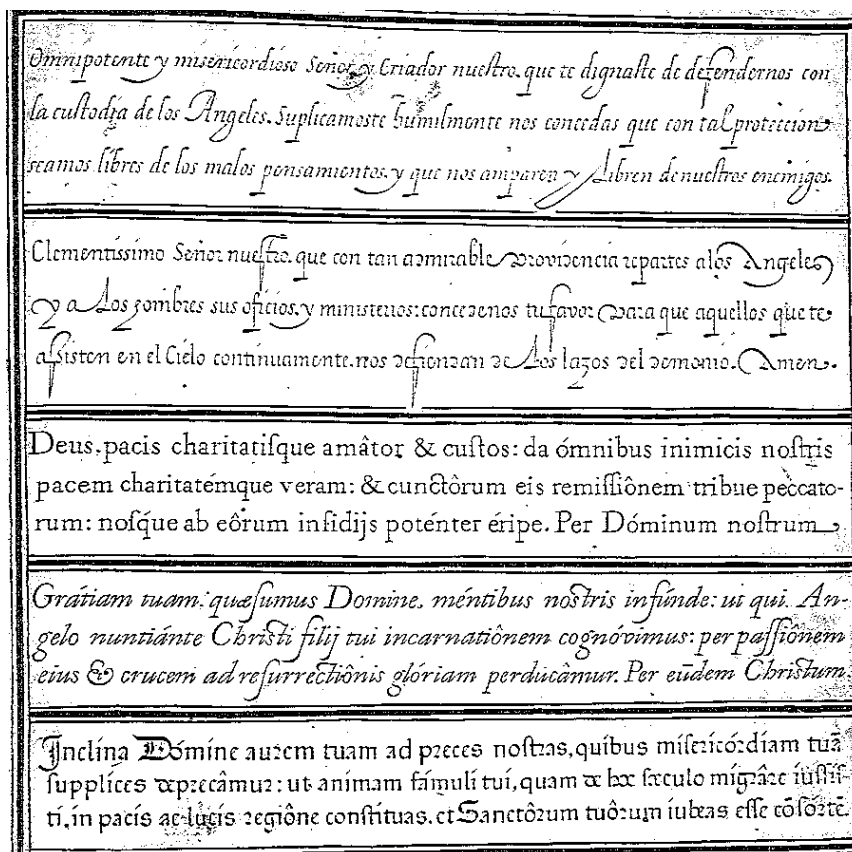 Omnipotente y misericordioso Señor, y Criador nuestro, que te dignaste de defendernos con
la custodia de los Angeles. Suplicamoste humilmente nos concedas que con tal proteccion
seamos libres de los malos pensamientos, y que nos amparen y Libren de nuestros enemigos.
Clementissimo Señor nuestro, que con tan admirable providencia repartes a los Angeles
y a Los hombres sus oficios, y ministerios: concedenos tu favor para que aquellos que te
assisten en el Cielo continuamente, nos defiendan de Los lazos del demonio. Amen.
Deus, pacis charitatiſque amâtor & cuſtos: da ómnibus inimicis noſtris
pacem charitatémque veram: & cunctôrum eis remiſſiônem tribue peccato-
rum: noſq́ue ab eôrum inſidijs poténter éripe. Per Dóminum noſtrum
Grátiam tuam, quæſumus Domine, méntibus noſtris infúnde: ut qui, An-
gelo nuntiánte Chriſti filij tui incarnatiônem cognóvimus: per paſſiônem
eius & crucem ad reſurrectiônis glóriam perducâmur. Per eūdem Chriſtum
Inclina Dómine aurem tuam ad preces noſtras, quibus miſericórdiam tuā
ſupplices deprecâmur: ut animam fámuli tui, quam de hoc ſæculo migrâre iuſſiſ-
ti, in pacis ac lucis regiône conſtituas, et Sanctôrum tuôrum iubeas eſſe cōſortē.